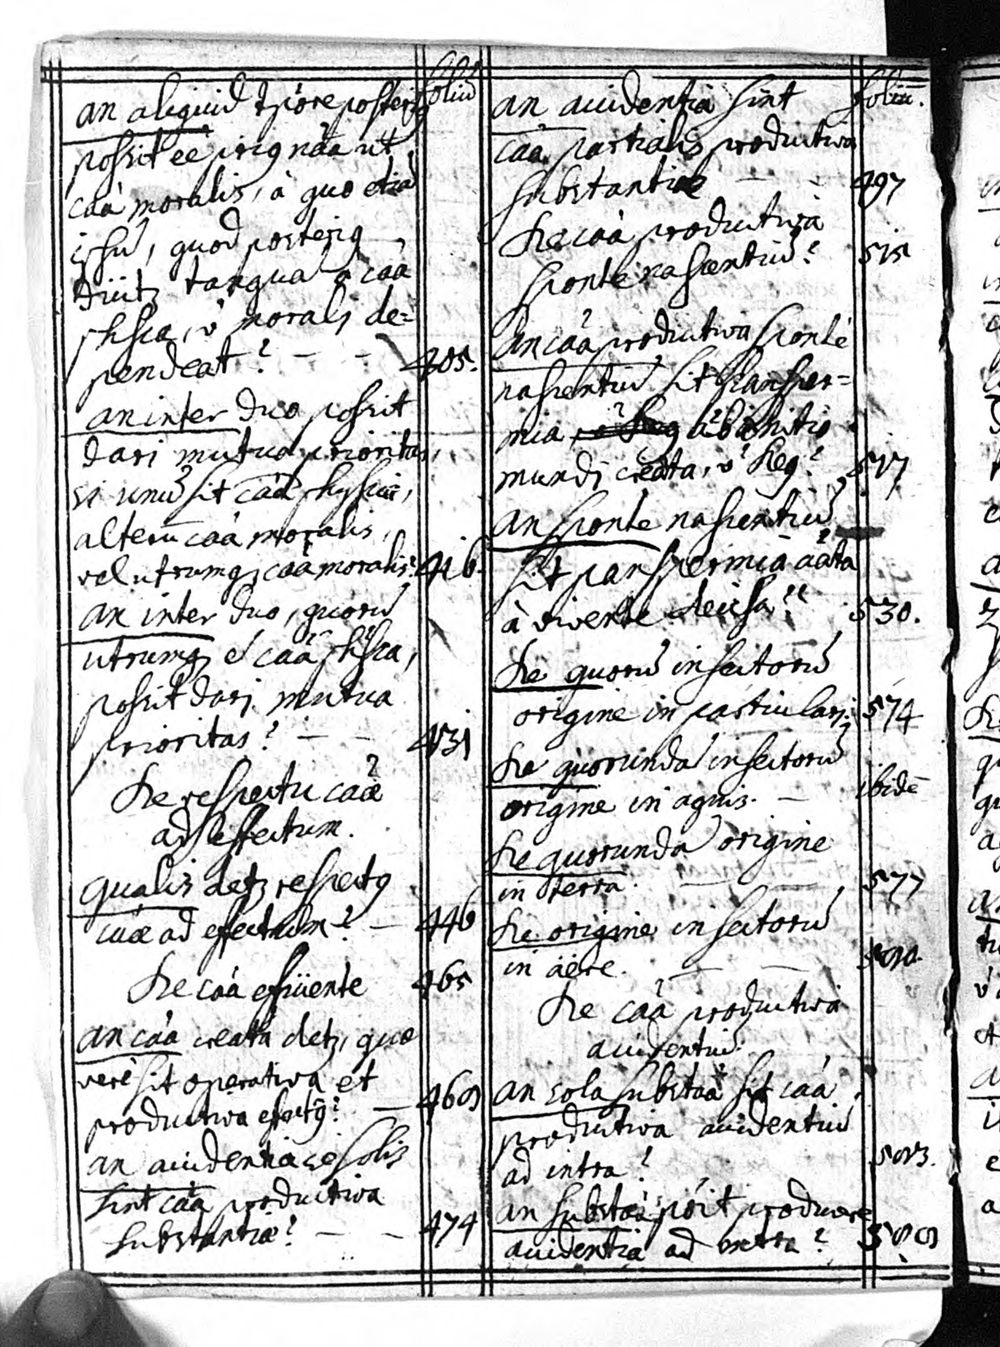 foliũ
an aliquid tp̃ore posteriq
possit eẽ priq nãa ut
caã moralis, à quo etiã
ipsũ, quod posteriq
dr̃itz tanquã à caã
phs̃ca, v̀ morali de=
pendeat? — — 405.
an inter duo possit
dari mutua prioritas,
si unũ sit caã physica,
alterũ caã moralis,
vel utrumq caã moralis? 416.
an inter duo, quorũ
utrumq ẽ caã phs̃ca,
possit dari mutua
prioritas? — — 431
De respectu caæ
ad effectum.
Qualis detz respectq
caæ ad effectum? — 446
De caã efficiente 465
an caã creata detz, quæ
verè sit operativa et
productiva effectq? — 469
an accidentia se solis
sint caã productiva
substantiæ? — — 474
foliũ.
an accidentia sint
caã partialis productiva
substantiæ — — 497
De caã productivã
sponte nascentiũ? 515
an caã productiva sponte
nascentiũ sit panspér=
mia ab initio
mundi creata, v̀ Neg? 517
an sponte nascentiũ
sit panspermia aãta
à vivente decisa? 530.
De quorũ insectorũ
origine in particulari? 574
De quorundã insectorũ
origine in aquis. — ibidẽ
De quorundã origine
in terra. — — 577
De origine insectorũ
in aëre. — —
De caã productivã
accidentiũ.
an sola substaã sit caã
productiva accidentiũ
ad intra? 593.
an substaã p̃oit producere
accidentia ad extra?